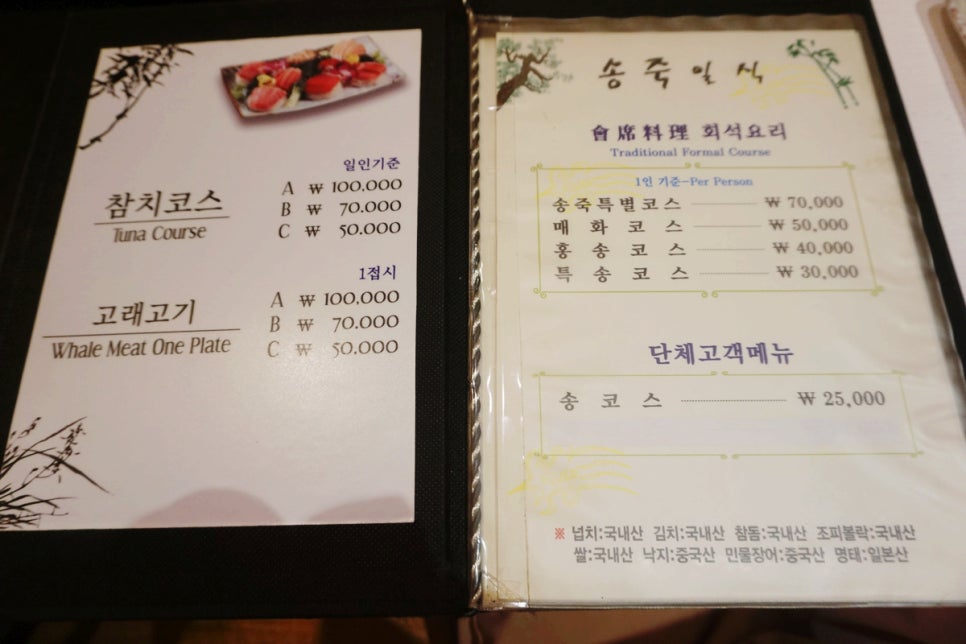 일인기준
참치코스
Tuna Course
A ₩ 100,000
B ₩ 70.000
C ₩ 50.000
1접시
고래고기
Whale Meat One Plate
A ₩ 100.000
B ₩ 70.000
C ₩ 50.000
송죽일식
會席料理 회석요리
Traditional Formal Course
1인 기준-Per Person
송죽특별코스 ₩ 70,000
매화코스 ₩ 50,000
홍송코스 ₩ 40,000
특송코스 ₩ 30,000
단체고객메뉴
송코스 ₩ 25,000
※ 넙치:국내산 김치:국내산 참돔:국내산 조피볼락:국내산
쌀:국내산 낙지:중국산 민물장어:중국산 명태:일본산